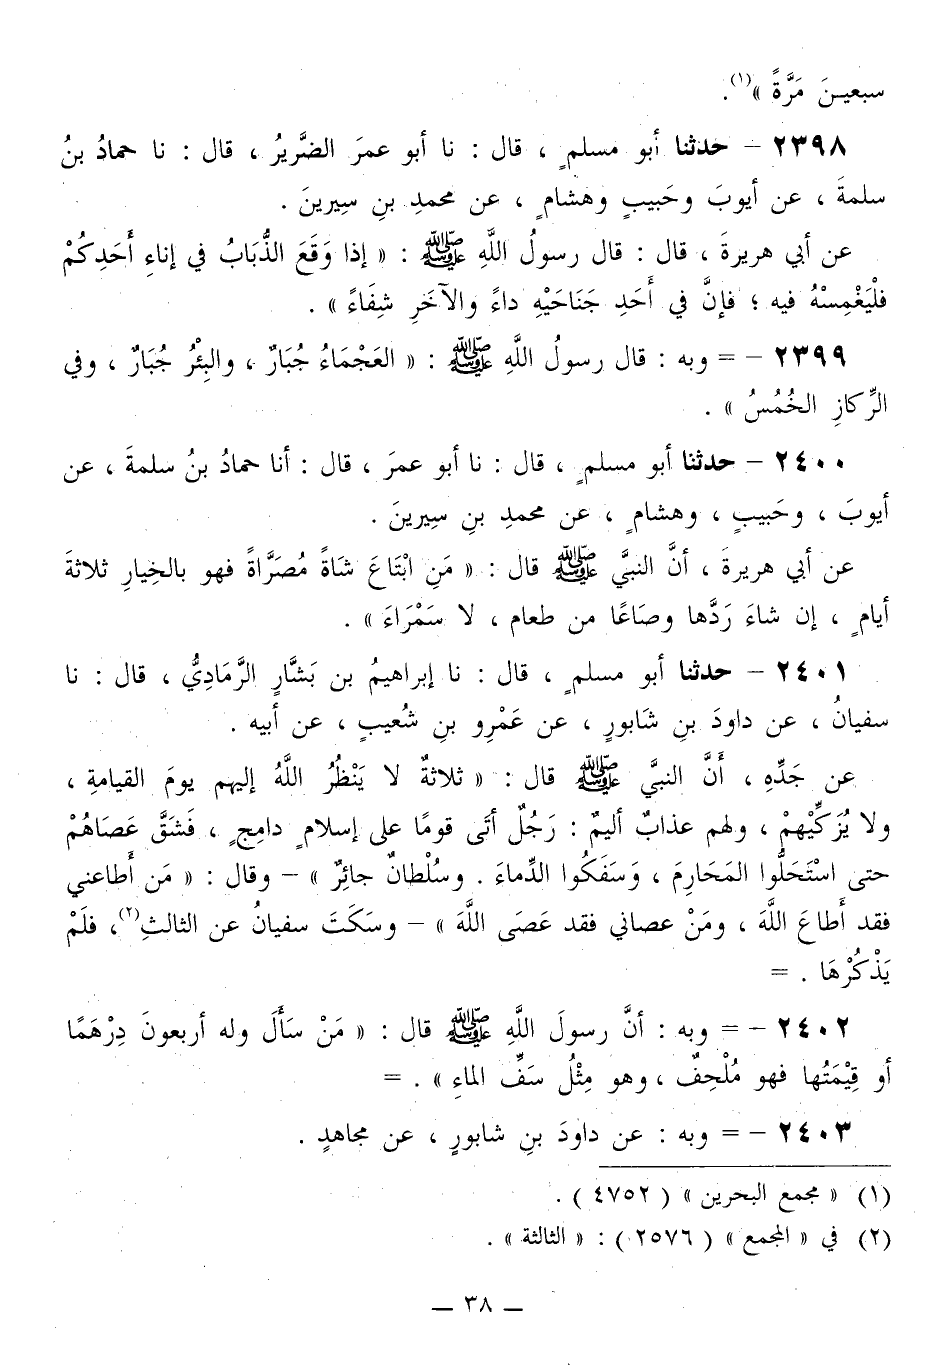 سبعينَ مَرَّةً »(١).
٢٣٩٨ – حدثنا أبو مسلمٍ ، قال : نا أبو عمرَ الضَّريرُ ، قال : نا حمادُ بنُ
سلمةَ ، عن أيوبَ وحَبيبٍ وهشامٍ ، عن محمدِ بنِ سِيرينَ .
عن أبي هريرةَ ، قال : قال رسولُ اللَّهِ ﷺ : « إذا وَقَعَ الذُّبَابُ في إناءِ أَحَدِكُمْ
فلْيَغْمِسْهُ فيه ؛ فإنَّ في أَحَدِ جَنَاحَيْهِ داءً والآخَرِ شِفَاءً » .
٢٣٩٩ – = وبه : قال رسولُ اللَّهِ ﷺ : « العَجْمَاءُ جُبَارٌ ، والبِئْرُ جُبَارٌ ، وفي
الرِّكازِ الخُمُسُ » .
٢٤٠٠ – حدثنا أبو مسلمٍ ، قال : نا أبو عمرَ ، قال : أنا حمادُ بنُ سلمةَ ، عن
أيوبَ ، وحَبيبٍ ، وهشامٍ ، عن محمدِ بنِ سِيرينَ .
عن أبي هريرةَ ، أنَّ النبيَّ ﷺ قال : « مَنِ ابْتَاعَ شَاةً مُصَرَّاةً فهو بالخِيارِ ثلاثةَ
أيامٍ ، إن شاءَ رَدَّها وصَاعًا من طعام ، لا سَمْرَاءَ » .
٢٤٠١ – حدثنا أبو مسلمٍ ، قال : نا إبراهيمُ بن بَشَّارٍ الرَّمَادِيُّ ، قال : نا
سفيانُ ، عن داودَ بنِ شَابورٍ ، عن عَمْرِو بنِ شُعيبٍ ، عن أبيه .
عن جَدِّهِ ، أَنَّ النبيَّ ﷺ قال : « ثلاثةٌ لا يَنْظُرُ اللَّهُ إليهم يومَ القيامةِ ،
ولا يُزَكِّيْهِمْ ، ولهم عذابٌ أليمٌ : رَجُلٌ أتَى قومًا على إسلامٍ دامِجٍ ، فَشَقَّ عَصَاهُمْ
حتى اسْتَحَلُّوا المَحَارِمَ ، وَسَفَكُوا الدِّماءَ . وسُلْطانٌ جائِرٌ » – وقال : « مَن أَطاعني
فقد أَطاعَ اللَّهَ ، ومَنْ عصاني فقد عَصَى اللَّهَ » – وسَكَتَ سفيانُ عن الثالثِ(٢)، فلَمْ
يَذْكُرْهَا . =
٢٤٠٢ – = وبه : أنَّ رسولَ اللَّهِ ﷺ قال : « مَنْ سَأَلَ وله أربعونَ دِرْهَمًا
أو قِيْمَتُها فهو مُلْحِفٌ ، وهو مِثْلُ سَفِّ الماءِ » . =
٢٤٠٣ – = وبه : عن داودَ بنِ شابورٍ ، عن مجاهدٍ .
(١) « مجمع البحرين » ( ٤٧٥٢ ) .
(٢) في « المجمع » ( ٢٥٧٦ ) : « الثالثة » .
– ٣٨ –